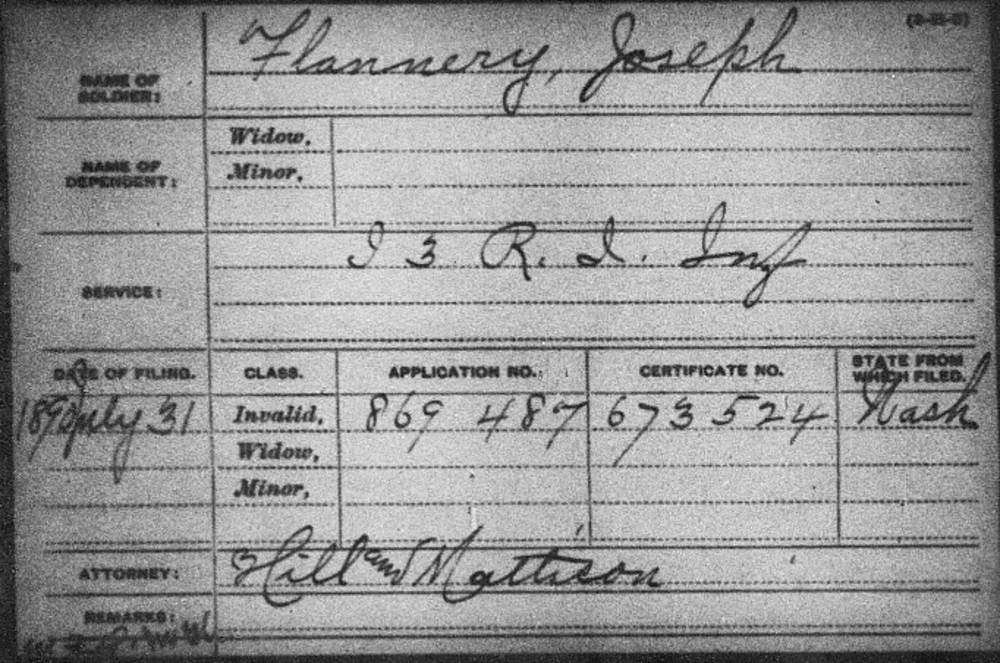 NAME OF SOLDIER: Flannery, Joseph
NAME OF DEPENDENT: Widow,
Minor,
SERVICE: I 3 R. I. Inf
DATE OF FILING. CLASS. APPLICATION NO. CERTIFICATE NO. STATE FROM WHICH FILED.
1890 July 31 Invalid, 869 487 673 524 Wash
Widow,
Minor,
ATTORNEY: Hill and Mattison
REMARKS: